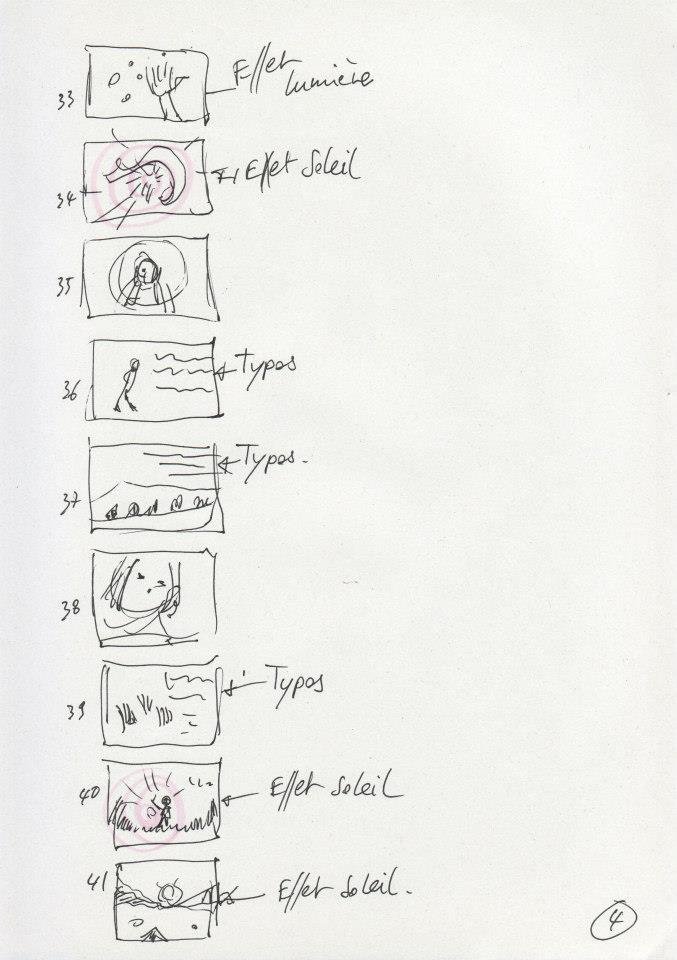 33
Effet
lumière
34
Effet Soleil
35
36
Typos
37
Typos.
38
39
Typos
40
Effet Soleil
41
Effet Soleil.
4